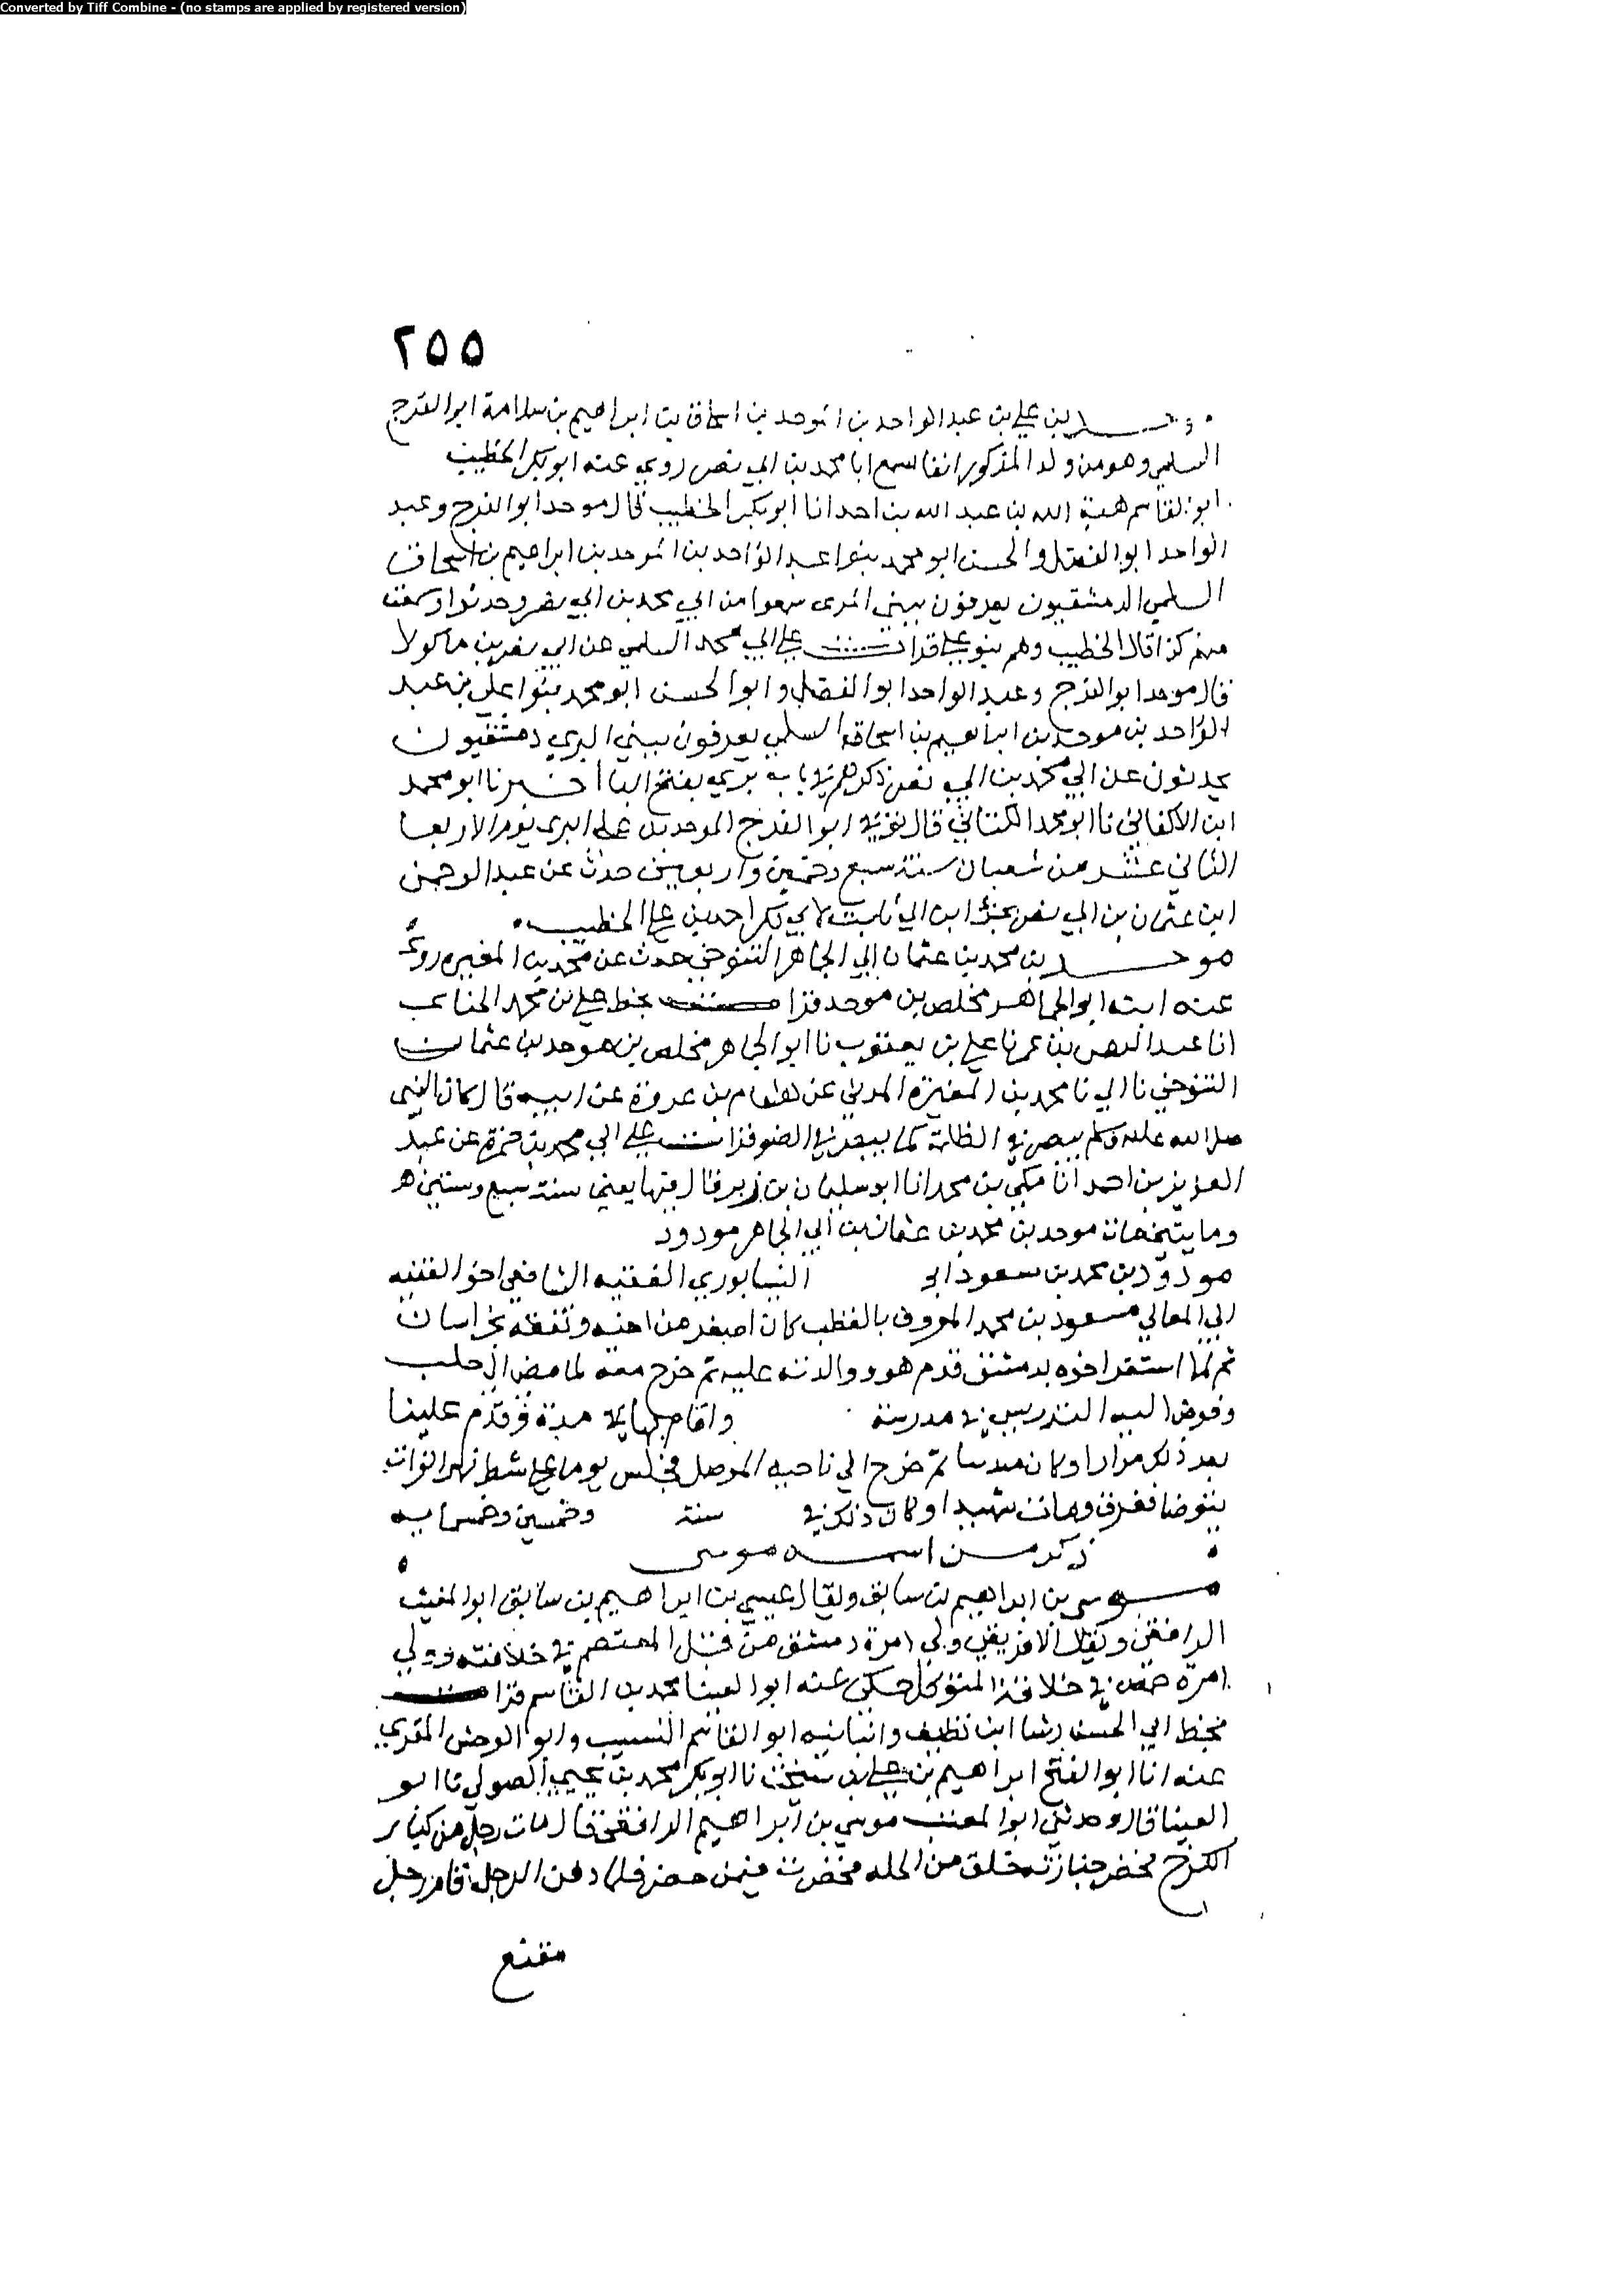 Converted by Tiff Combine - (no stamps are applied by registered version)
٢٥٥
بن علي بن عبد الواحد بن الموحد بن اسحاق بن ابراهيم بن سلامة ابو الفرج
السلمي وهو من ولد المذكور انفا سمع ابا محمد بن ابي نصر روى عنه ابو بكر الخطيب
ابو القاسم هبة الله بن عبد الله بن احمد انا ابو بكر الخطيب قال موحد ابو الفرج وعبد
الواحد ابو الفضل والحسن ابو محمد بنوا عبد الواحد بن الموحد بن ابراهيم بن اسحاق
السلمي الدمشقيون يعرفون ببني البري سمعوا من ابي محمد بن ابي نصر وحدثوا وسمعت
منهم كذا قال الخطيب وهم بنو علي قرات على ابي محمد السلمي عن ابي نصر بن ماكولا
قال موحد ابو الفرج وعبد الواحد ابو الفضل وابو الحسن ابو محمد بنوا علي بن عبد
الواحد بن موحد بن ابراهيم بن اسحاق السلمي يعرفون ببني البري دمشقيون
يحدثون عن ابي محمد بن ابي نصر ذكرهم في باب بري بفتح البا اخبرنا ابو محمد
ابن الاكفاني نا ابو محمد الكتاني قال توفي ابو الفرج الموحد بن علي البري يوم الاربعا
الثاني عشر من شعبان سنة سبع وخمسين واربعمية حدث عن عبد الرحمن
ابن عثمان بن ابي نصر بجزء ابن ابي ثابت لابي بكر احمد بن علي الخطيب
موحد بن محمد بن عثمان ابي الجماهر التنوخي حدث عن محمد بن المغيره روى
عنه ابنه ابو الجماهر مخلص بن موحد قرات بخط علي بن محمد الحنائي
انا عبد الرحمن بن عمر نا علي بن يعقوب نا ابو الجماهر مخلص بن موحد بن عثمان
التنوخي نا ابي نا محمد بن المغيرة المدني عن هشام بن عروة عن ابيه قال كان النبي
صلى الله عليه وسلم يبصر في الظلمة كما يبصر في الضو قرات على ابي محمد بن حمزة عن عبد
العزيز بن احمد انا مكي بن محمد انا ابو سليمان بن زبر قال فيها يعني سنة سبع وستين
ومايتين مات موحد بن محمد بن عثمان بن ابي الجماهر مودود
مودود بن محمد بن مسعود ابو النيسابوري الفقيه الشافعي اخو الفقيه
ابي المعالي مسعود بن محمد المعروف بالقطب كان اصغر من اخيه وتفقه بخراسان
ثم لما استقر اخوه بدمشق قدم هو ووالدته عليه ثم خرج معه لما مضى الى حلب
وفوض اليه التدريس في مدرسة واقام بها مدة وقدم علينا
بعد ذلك مرارا وكان ثم خرج الى ناحية الموصل فجلس يوما على شط نهر الفرات
يتوضا فغرق ومات شهيدا وكان ذلك في سنة وخمسين وخمسمايه
ذكر من اسمه موسى
موسى بن ابراهيم بن سابق ويقال عيسى بن ابراهيم بن سابق ابو المغيث
الرافقي ويقال الافريقي ولي امرة دمشق من قبل المعتصم في خلافته وولي
امرة حمص في خلافة المتوكل حكى عنه ابو العينا محمد بن القاسم قرات
بخط ابي الحسن رشا ابن نظيف وانبانيه ابو القاسم النسيب وابو الوحش المقري
عنه انا ابو الفتح ابراهيم بن علي بن سيبخت نا ابو بكر محمد بن يحيى الصولي نا ابو
العينا قال وحدثني ابو المغيث موسى بن ابراهيم الرافقي قال مات رجل من كبار
الكرخ فحضر جنازته خلق من الجلة فحضرت فيمن حضر فلما دفن الرجل قام رجل
مقنع